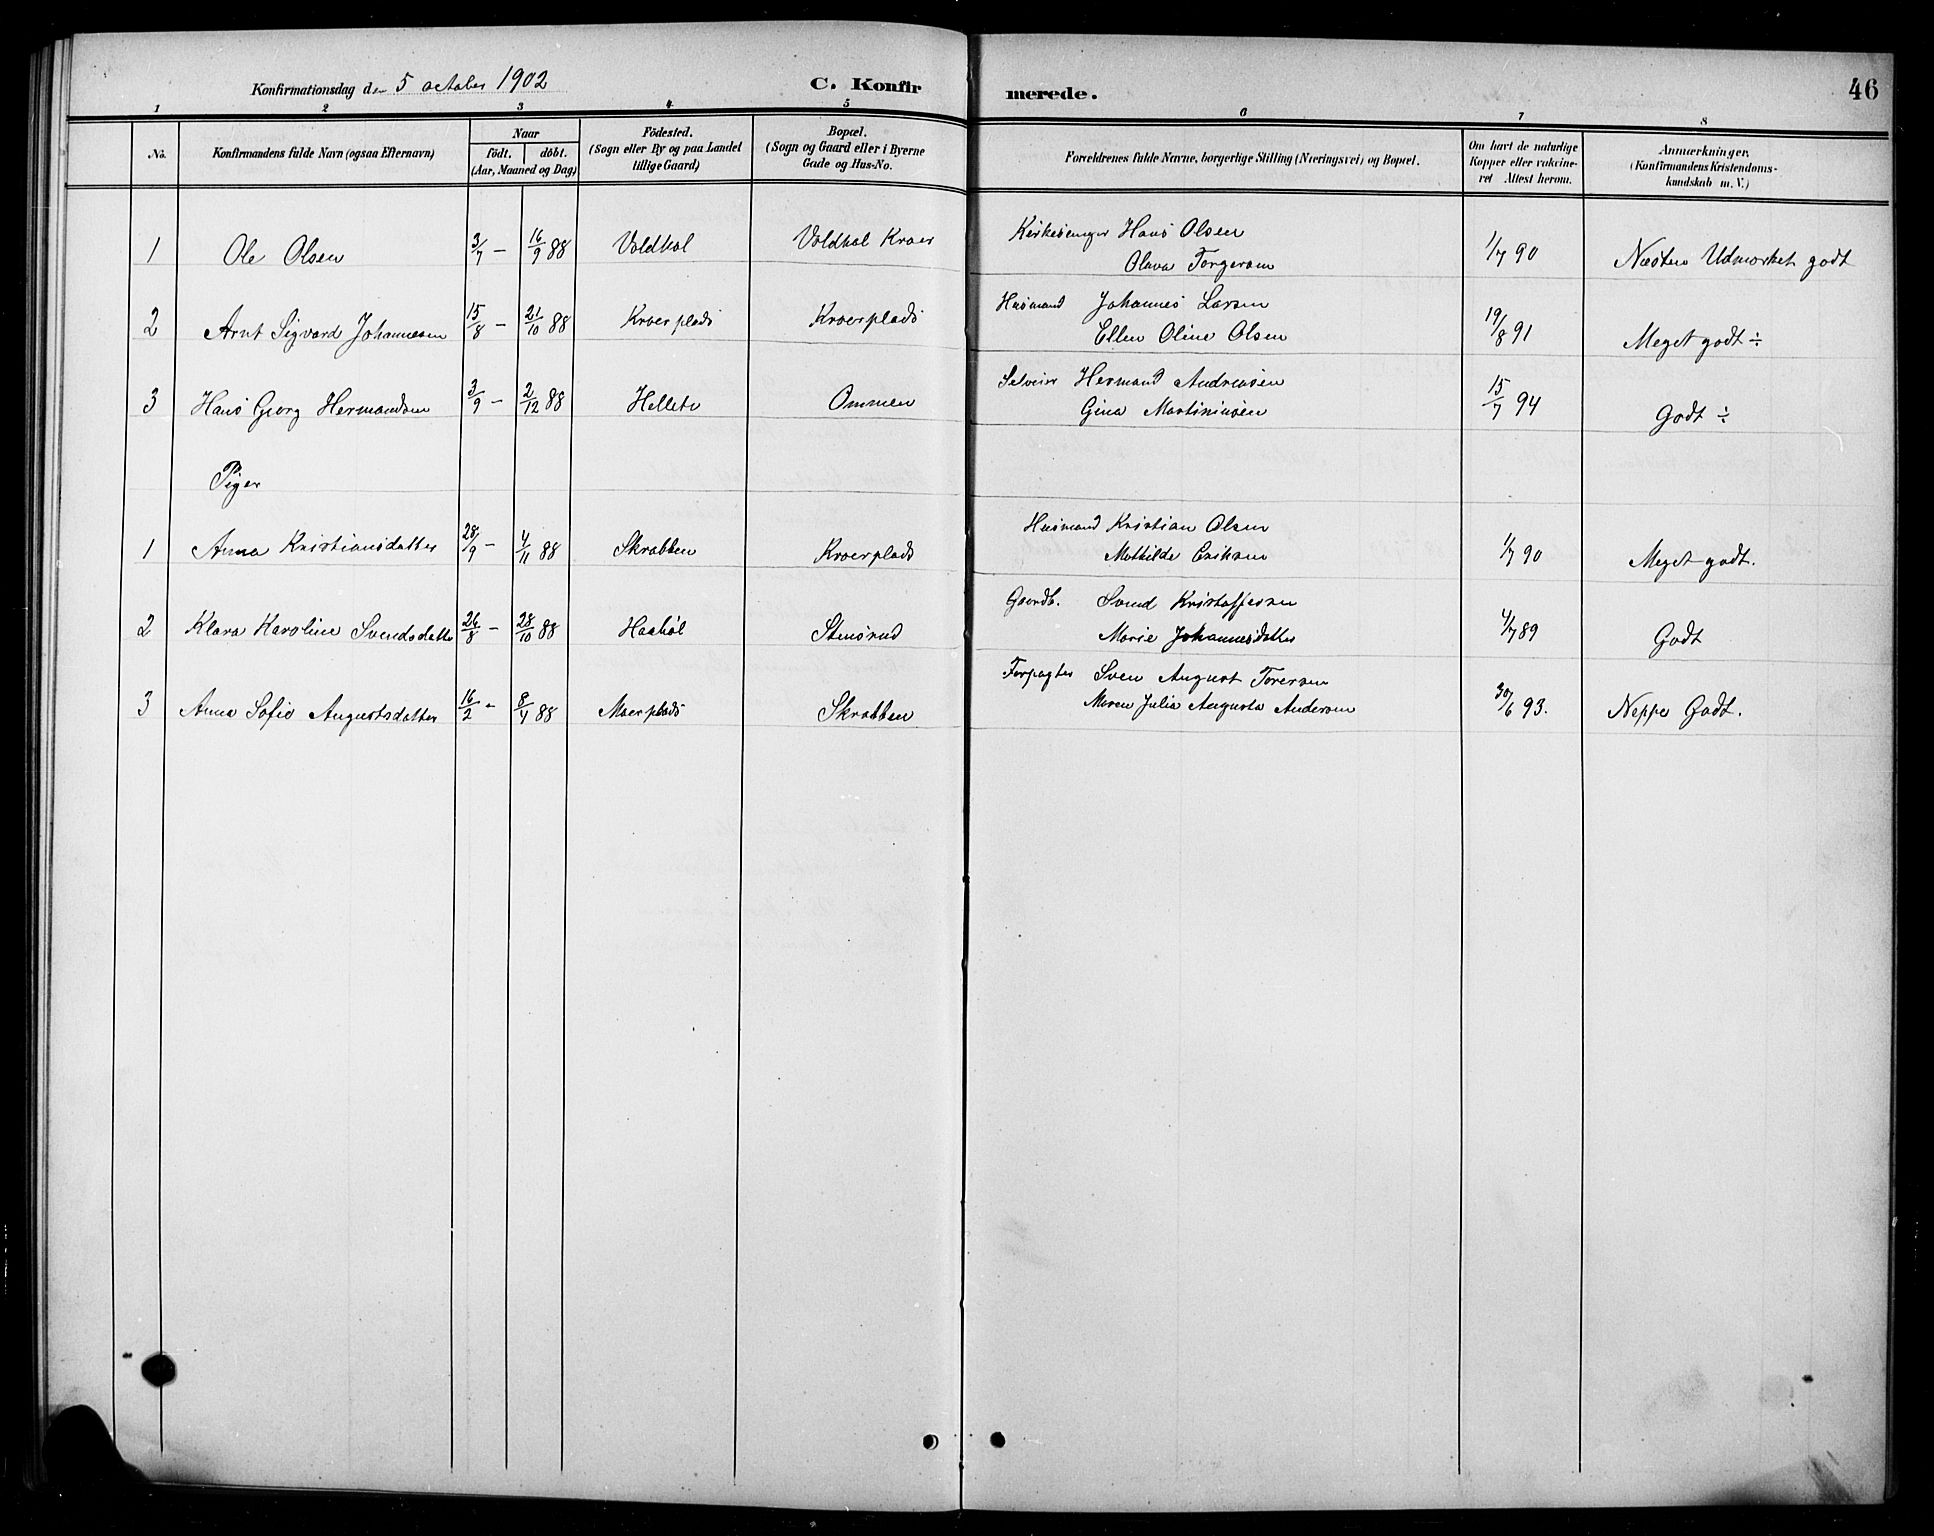 Konfirmationsdag den 5 october 1902
C. Konfirmerede.
46
1 2 3 4 5 6 7 8
No.
Konfirmandens fulde Navn (ogsaa Efternavn)
Naar
födt. döbt.
(Aar, Maaned og Dag)
Födested.
(Sogn eller By og paa Landet
tillige Gaard)
Bopæl.
(Sogn og Gaard eller i Byerne
Gade og Hus-No.
Forældrenes fulde Navne, borgerlige Stilling (Næringsvei) og Bopæl.
Om havt de naturlige
Kopper eller vakcine-
ret Attest herom.
Anmærkninger.
(Konfirmandens Kristendoms-
kundskab m. V.)
1 Ole Olsen 3/7 – 16/9 88 Voldhol Voldhol Kroer Kirkesanger Hans Olsen
Olava Torgersen 1/7 90 Næsten Udmærket godt
2 Arnt Sigvard Johannesen 15/8 – 21/10 88 Kroerplads Kroerplads Husmand Johannes Larsen
Ellen Oline Olsen 19/8 91 Meget godt ÷
3 Hans Georg Hermandsen 3/9 – 2/12 88 Ommen Selveier Hermand Andreasen
Gina Martiniusen 15/7 94 Godt ÷
Piger
1 Anna Kristiansdatter 28/9 – 4/11 88 Skrabben Kroerplads Husmand Kristian Olsen
Mathilde Eriksen 1/7 90 Meget godt.
2 Klara Karoline Svendsdatter 26/8 – 28/10 88 Haahol Stensrud Gaardb. Svend Kristoffersen
Marie Johannesdatter 4/7 89 Godt
3 Anna Sofie Augustsdatter 16/2 – 8/4 88 Moerplads Skrabben Forpagter Sven August Toresen
Maren Julia Augusta Andersen 30/6 93. Neppe Godt.